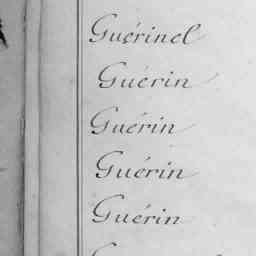 Guérinel
Guérin
Guérin
Guérin
Guérin